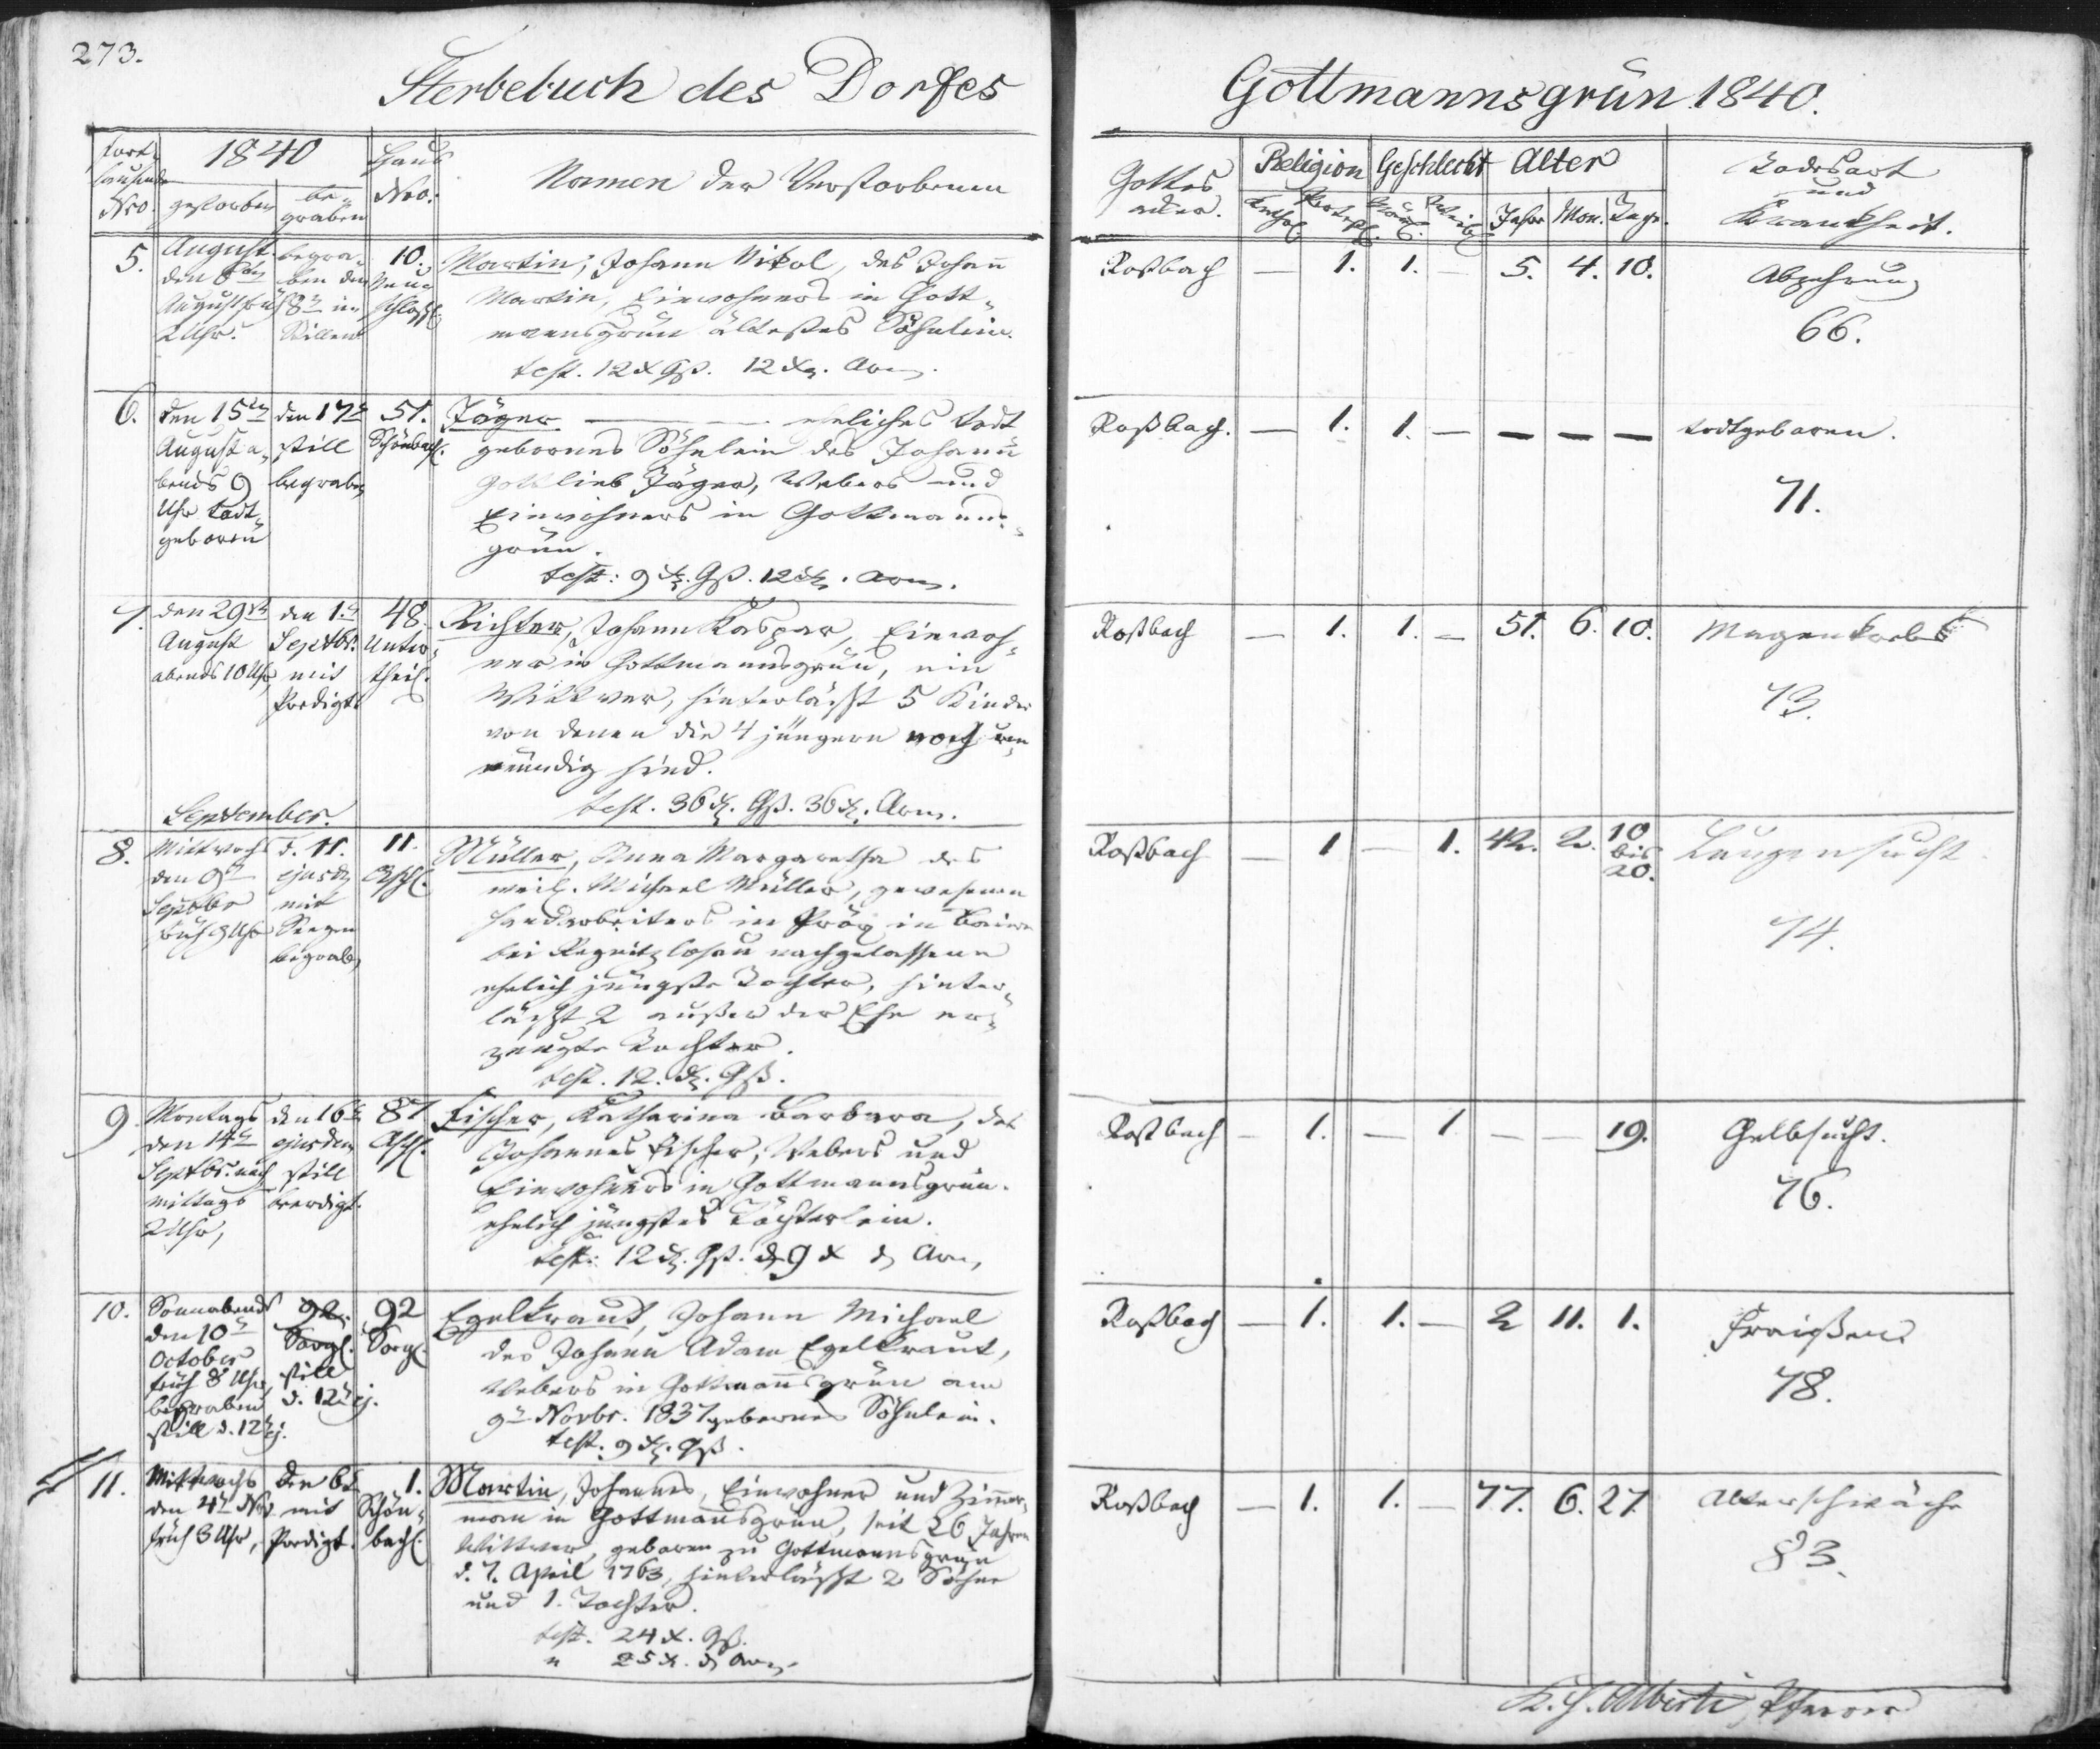 273.
Sterbebuch des Dorfes
Gottmannsgrün 1840.
fort-
laufende
Nro.
1840
gestorben
be-
graben
Haus
Nro.
Namen der Verstorbenen
Gottes
acker.
Religion
Kathol.
Protest.
Geschlecht
Männl.
Weibl.
Alter
Jahr
Mon.
Tage.
Todesart
und
Krankheit.
5.
August.
den 6ten
August früh
2 Uhr.
begra-
ben den
8n im
Stillen
10.
Neu-
schloßl.
Martin, Johann Nikol, des Johann
Martin, Einwohners in Gott-
mannsgrün ältestes Söhnlein.
test. 12 x Gß. 12 xr. Arm.
Roßbach — 1. 1. — 5. 4. 10.
Abzehrung
66.
6.
den 15ten
August a-
bends 9
Uhr todt-
geboren
den 17n
still
begraben
51.
Schönbach.
Jäger ——— eheliches todt
gebornes Söhnlein des Johann
Gottlieb Jäger, Webers und
Einwohners in Gottmanns-
grün.
test: 9 xr. Gß. 12 xr. Arm.
Roßbach. — 1. 1. — — — — todtgeboren.
71.
7.
den 29sten
August
abends 10 Uhr,
den 1.n
Septbr.
mit
Predigt
48.
Unter-
theil.
Richter, Johann Kaspar, Einwoh-
ner in Gottmannsgrün, ein
Wittwer, hinterläßt 5 Kinder
von denen die 4 jüngern noch un-
mündig sind.
test. 36 xr. Gß. 36 xr. Arm.
Roßbach — 1. 1. — 51. 6. 10. Magenkrebs
73.
September.
8.
Mittwochs
den 9n
Septbr
früh 9 Uhr
d. 11.
ejusd.
mit
Seegen
begrab,
11.
Aschl.
Müller, Anna Margaretha des
weil. Michael Müller, gewesenen
Handarbeiters in Präx in Baiern
bei Regnitzlosau nachgelassene
ehelich jüngste Tochter, hinter-
läßt 2 außer der Ehe er-
zeugte Tochter.
test. 12. xr. Gß.
Roßbach — 1 — 1. 42. 2. 10
bis
20.
Lungensucht
74.
9.
Montags
den 14n
Septbr. nach
mittags
2 Uhr,
den 16n
ejusdem
still
beerdigt.
87
Aschl.
Fischer, Katharina Barbara, des
Johannes Fischer, Webers und
Einwohners in Gottmannsgrün.
ehelich jüngstes Töchterlein.
test: 12 xr. Gß. 9 x Arm,
Roßbach — 1. — 1 — — 19. Gelbsucht.
76.
10.
Sonnabends
den 10n
October
früh 8 Uhr,
begraben
still d. 12n ej.
92.
Sorgl.
still
d. 12n ej.
92
Sorgl.
Egelkraut, Johann Michael
des Johann Adam Egelkraut,
Webers in Gottmannsgrün am
9n Novbr. 1837 gebornes Söhnlein.
test. 9 xr. Gß.
Roßbach — 1. 1. — 2 11. 1. Fraißen.
78.
11.
Mittwochs
den 4n Nov
früh 3 Uhr,
den 6n
mit
Predigt.
1.
Schön-
bachl.
Martin, Johannes, Einwohner und Zimmer-
man in Gottmannsgrün, seit 26 Jahren
Wittwer, geboren zu Gottmannsgrün
d. 7. April 1763, hinterläßt 2 Söhne
und 1. Tochter.
test. 24 x. Gß.
" 25 x. Arm.
Roßbach — 1. 1. — 77. 6. 27. Altersschwäche
83.
Alberti, Pfarrer